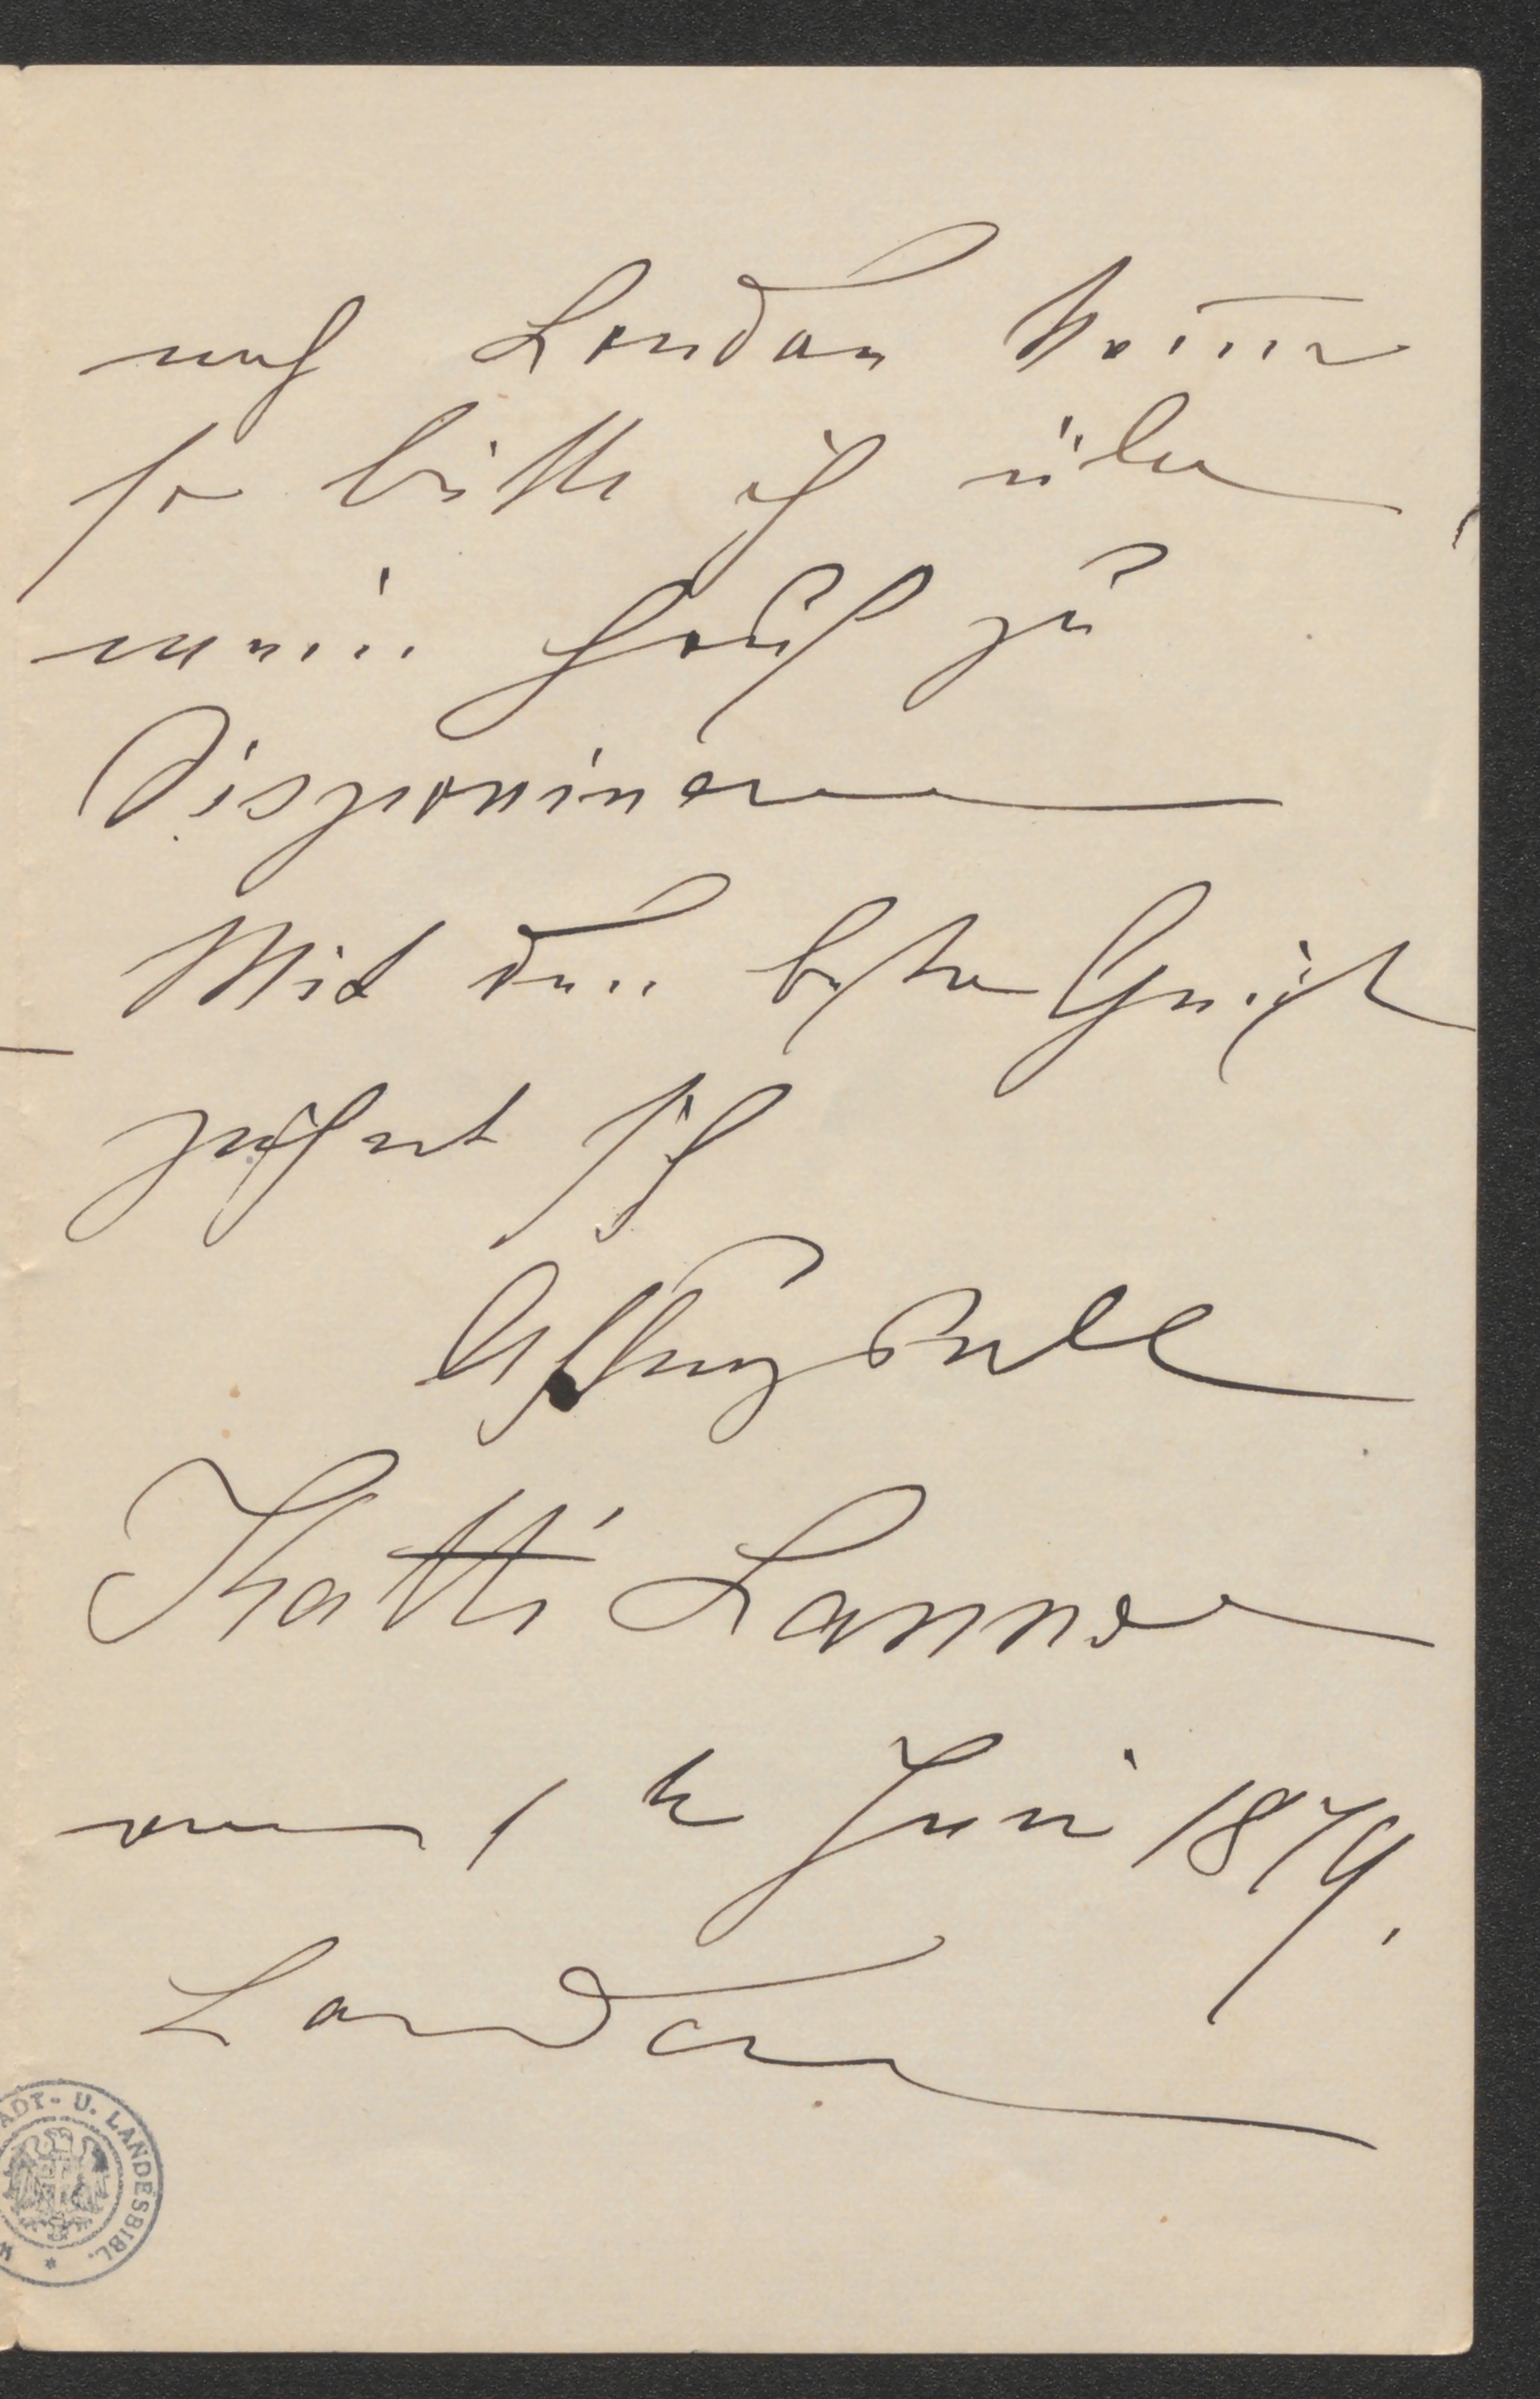 nach London kom̅en
so bitte ich über
mein Hauß zu
Disponieren
Mit den besten Grüßen
zeichnet sich
Achtungsvoll
Katti Lanner
am 1 te Juni 1879.
London
ADT- U. LANDESBIBL. * W